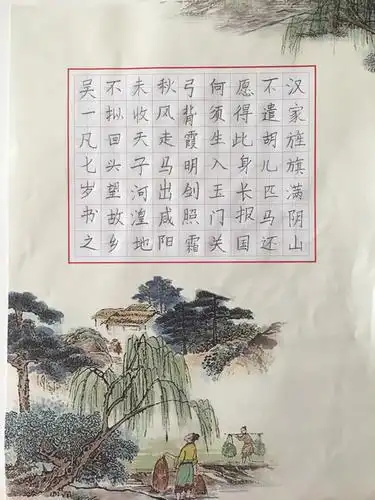 汉家旌旗满阴山
不遣胡儿匹马还
愿得此身长报国
何须生入玉门关
弓背霞明剑照霜
秋风走马出咸阳
未收天子河湟地
不拟回头望故乡
吴一凡七岁书之